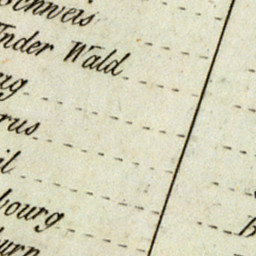 Schweis
Under Wald
ug
rus
il
bourg
hurn
B